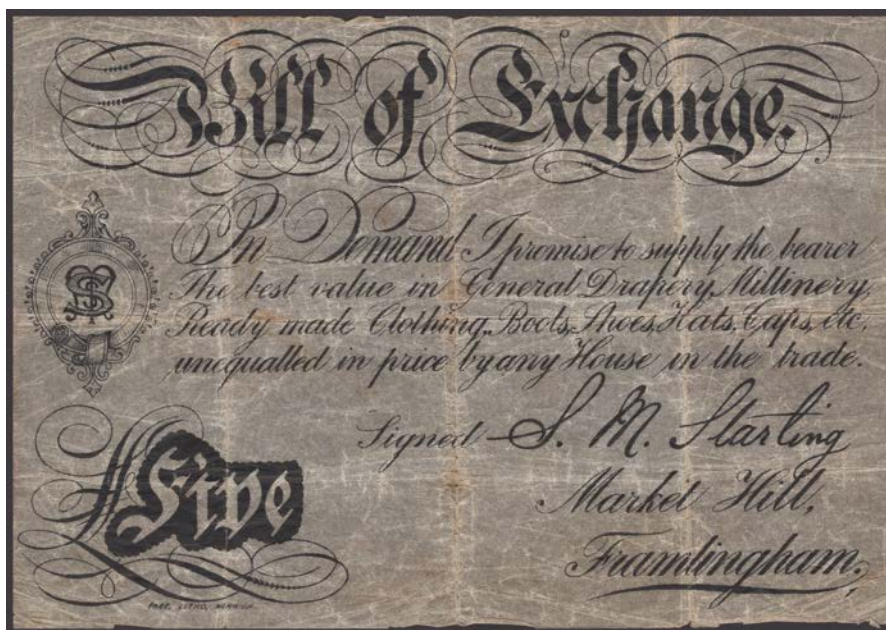 Bill of Exchange.
On Demand I promise to supply the bearer
The best value in General Drapery, Millinery,
Ready made Clothing, Boots, Shoes, Hats, Caps, etc,
unequalled in price by any House in the trade.
Signed S. M. Starling
Market Hill,
£Five
Framlingham.
LITHO, NORWICH